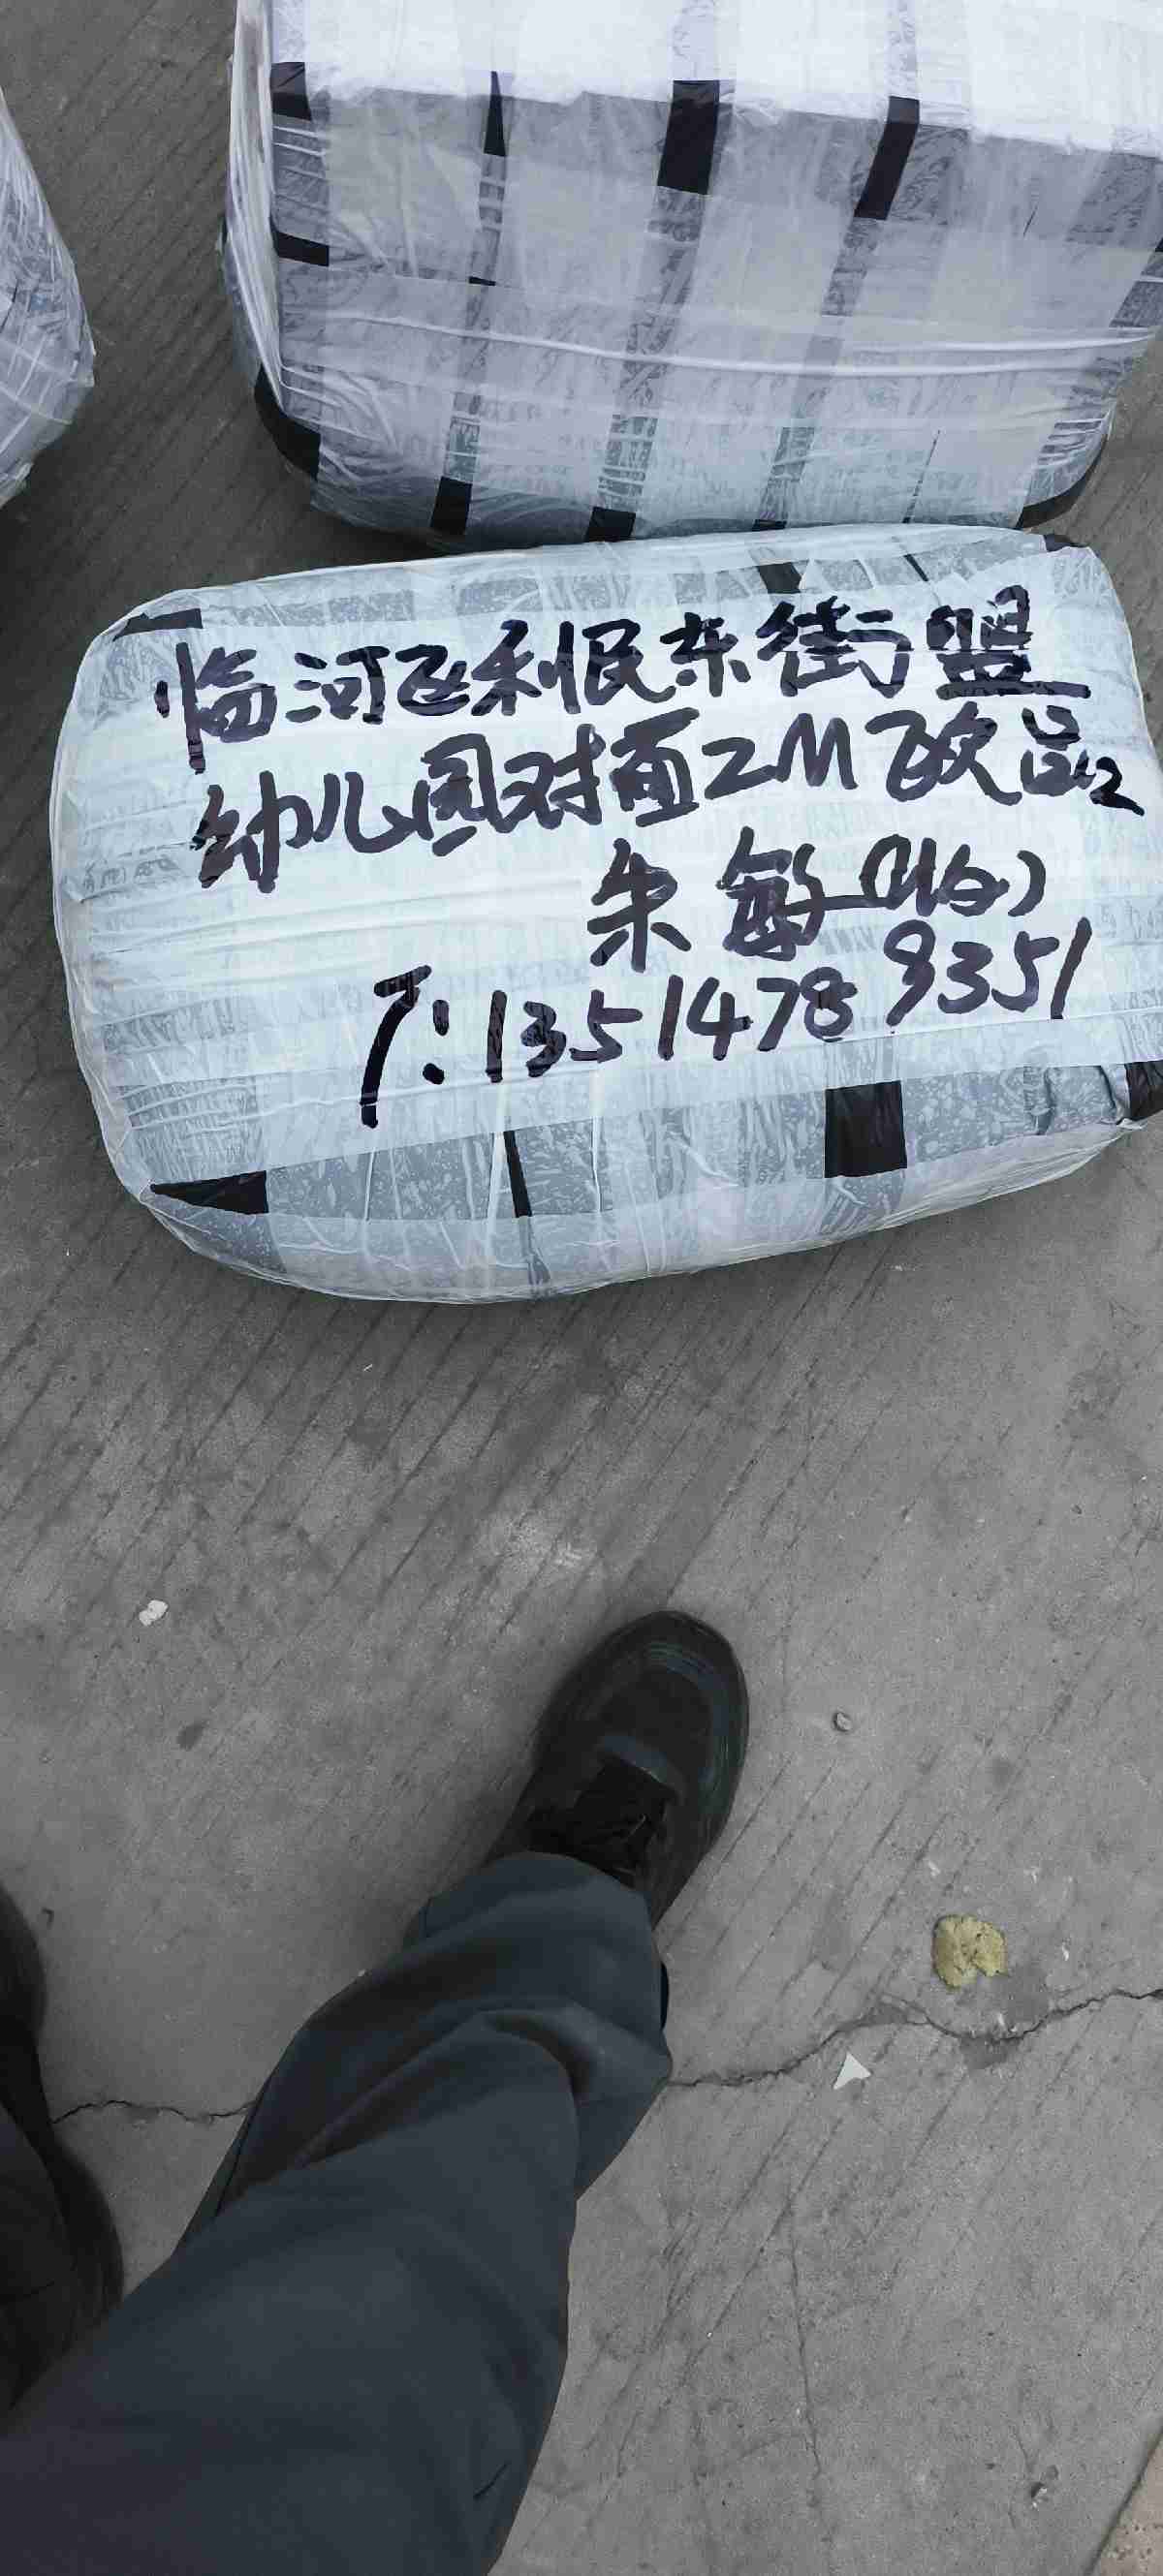 临河区利民东街盟
幼儿园对面ZM饰品
朱敏(收)
T:13514789351